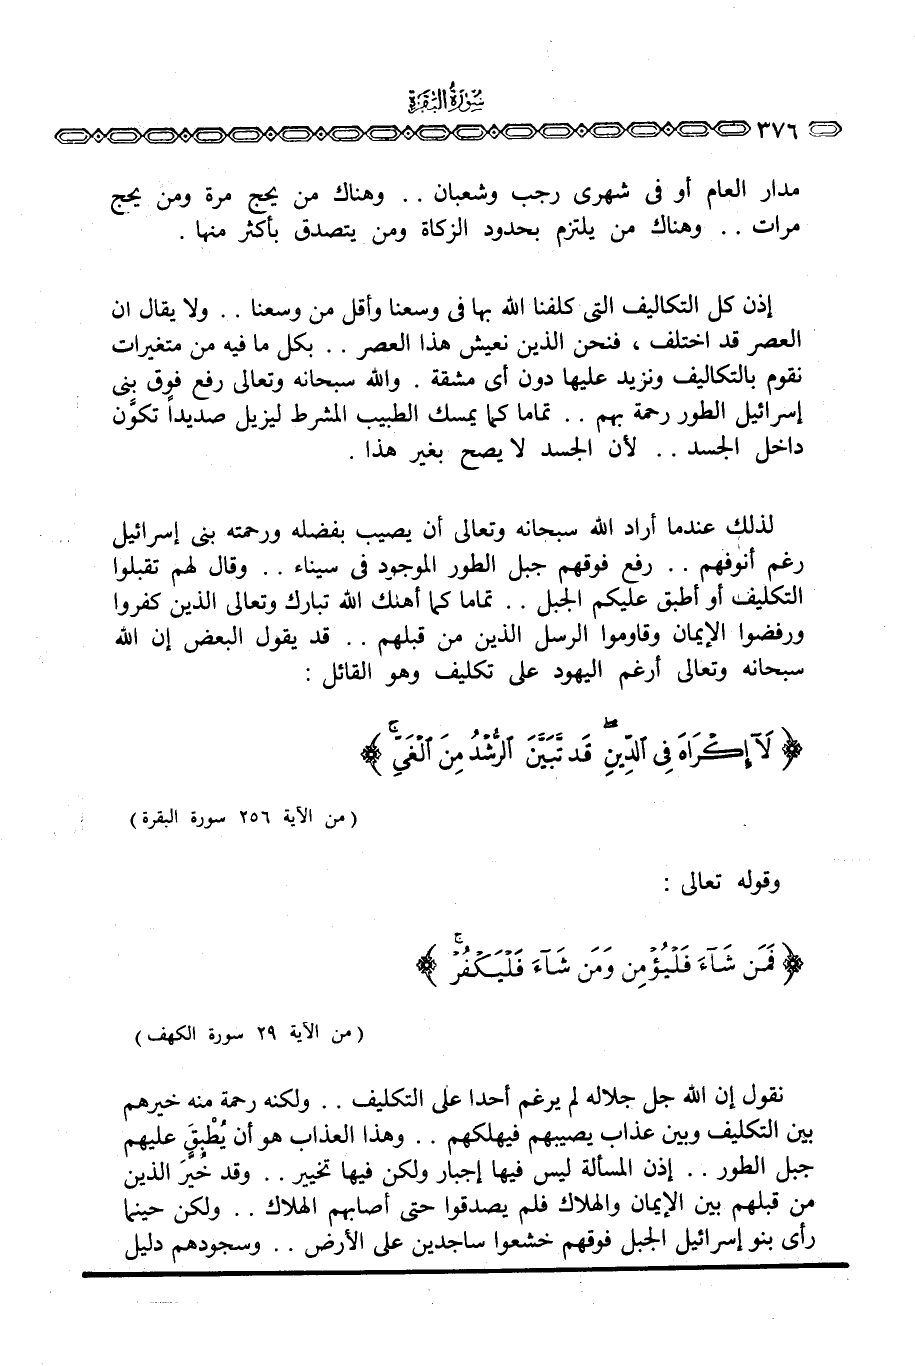 سورة البقرة
٣٧٦
مدار العام أو فى شهرى رجب وشعبان .. وهناك من يحج مرة ومن يحج
مرات .. وهناك من يلتزم بحدود الزكاة ومن يتصدق بأكثر منها .
إذن كل التكاليف التى كلفنا الله بها فى وسعنا وأقل من وسعنا .. ولا يقال ان
العصر قد اختلف ، فنحن الذين نعيش هذا العصر .. بكل ما فيه من متغيرات
نقوم بالتكاليف ونزيد عليها دون أى مشقة . والله سبحانه وتعالى رفع فوق بنى
إسرائيل الطور رحمة بهم .. تماما كما يمسك الطبيب المشرط ليزيل صديداً تكوَّن
داخل الجسد .. لأن الجسد لا يصح بغير هذا .
لذلك عندما أراد الله سبحانه وتعالى أن يصيب بفضله ورحمته بنى إسرائيل
رغم أنوفهم .. رفع فوقهم جبل الطور الموجود فى سيناء .. وقال لهم تقبلوا
التكليف أو أطبق عليكم الجبل .. تماما كما أهلك الله تبارك وتعالى الذين كفروا
ورفضوا الإيمان وقاوموا الرسل الذين من قبلهم .. قد يقول البعض إن الله
سبحانه وتعالى أرغم اليهود على تكليف وهو القائل :
﴿ لَآ إِكْرَاهَ فِى ٱلدِّينِ ۖ قَد تَّبَيَّنَ ٱلرُّشْدُ مِنَ ٱلْغَىِّ ۚ ﴾
( من الآية ٢٥٦ سورة البقرة )
وقوله تعالى :
﴿ فَمَن شَآءَ فَلْيُؤْمِن وَمَن شَآءَ فَلْيَكْفُرْ ۚ ﴾
( من الآية ٢٩ سورة الكهف )
نقول إن الله جل جلاله لم يرغم أحدا على التكليف .. ولكنه رحمة منه خيرهم
بين التكليف وبين عذاب يصيبهم فيهلكهم .. وهذا العذاب هو أن يُطْبِقَ عليهم
جبل الطور .. إذن المسألة ليس فيها إجبار ولكن فيها تخيير .. وقد خُيِّرَ الذين
من قبلهم بين الإيمان والهلاك فلم يصدقوا حتى أصابهم الهلاك .. ولكن حينما
رأى بنو إسرائيل الجبل فوقهم خشعوا ساجدين على الأرض .. وسجودهم دليل